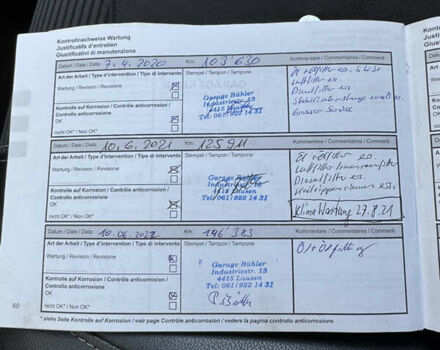 Kontrollnachweise Wartung
Justificatifs d'entretien
Giustificativi di manutenzione
Datum / Date / Data 7.4.2020 Km 103'630 Kommentare / Commentaires / Commenti
Art der Arbeit / Type d'intervention / Tipo di intervento Stempel / Tampon / Tampone
Wartung / Revision / Revisione
Kontrolle auf Korrosion / Contrôle anticorrosion / Controllo anticorrosione
OK
nicht OK* / Non OK*
Garage Bühler
Industriestr. 13
4415 Lausen
Tel. 061/922 14 31
Öl + Ölfilter
Luftfilter
Dieselfilter
Grosser Service
Datum / Date / Data 10.6.2021 Km 125'911 Kommentare / Commentaires / Commenti
Art der Arbeit / Type d'intervention / Tipo di intervento Stempel / Tampon / Tampone
Wartung / Revision / Revisione
Kontrolle auf Korrosion / Contrôle anticorrosion / Controllo anticorrosione
OK
nicht OK* / Non OK*
Garage Bühler
Industriestr. 13
4415 Lausen
Tel. 061/922 14 31
Öl + Ölfilter
Luftfilter Innenraumfilter
Dieselfilter
Klima Wartung 27.8.21
Datum / Date / Data 10.06.2022 Km 146'383 Kommentare / Commentaires / Commenti
Art der Arbeit / Type d'intervention / Tipo di intervento Stempel / Tampon / Tampone
Wartung / Revision / Revisione
Kontrolle auf Korrosion / Contrôle anticorrosion / Controllo anticorrosione
OK
nicht OK* / Non OK*
Garage Bühler
Industriestr. 13
4415 Lausen
Tel. 061/922 14 31
Öl + Ölfilter
60
* siehe Seite Kontrolle auf Korrosion / voir page Contrôle anticorrosion / vedere la pagina controllo anticorrosione